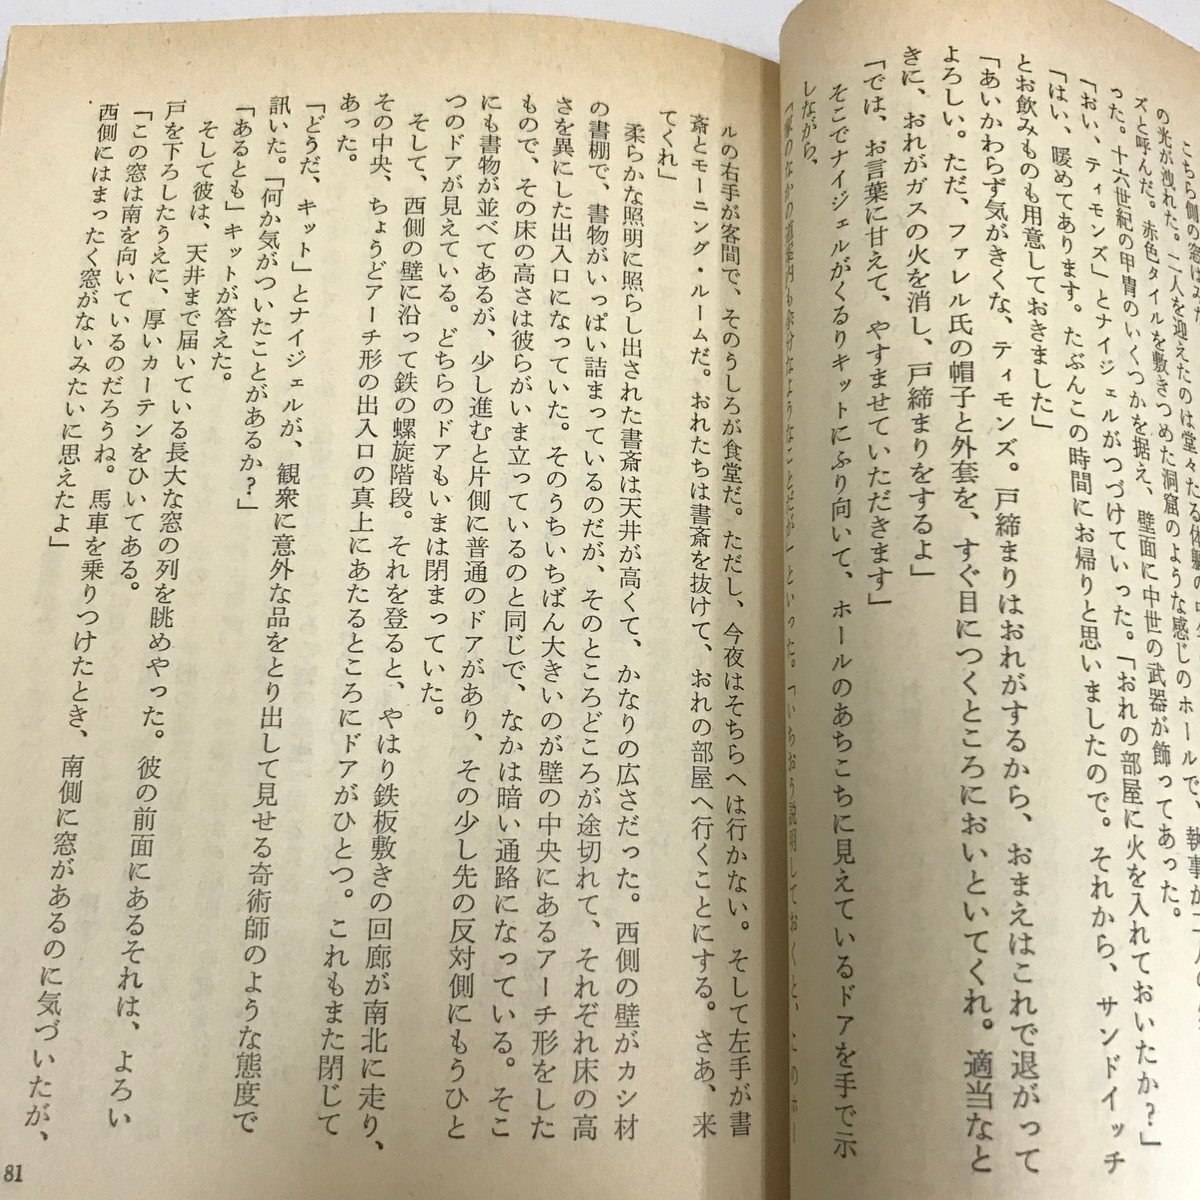 こちら側の窓は
の光が洩れた。二人を迎えたのは堂々たる体軀の
ズと呼んだ。赤色タイルを敷きつめた洞窟のような感じのホールで、執事が
った。十六世紀の甲冑のいくつかを据え、壁面に中世の武器が飾ってあった。
「おい、ティモンズ」とナイジェルがつづけていった。「おれの部屋に火を入れておいたか？」
「はい、暖めてあります。たぶんこの時間にお帰りと思いましたので。それから、サンドイッチ
とお飲みものも用意しておきました」
「あいかわらず気がきくな、ティモンズ。戸締まりはおれがするから、おまえはこれで退がって
よろしい。ただ、ファレル氏の帽子と外套を、すぐ目につくところにおいといてくれ。適当なと
きに、おれがガスの火を消し、戸締まりをするよ」
「では、お言葉に甘えて、やすませていただきます」
そこでナイジェルがくるりキットにふり向いて、ホールのあちこちに見えているドアを手で示
しながら、
「家のなかの道案内も余分なようなことだが」といった。「いちおう説明しておくと、このホー
ルの右手が客間で、そのうしろが食堂だ。ただし、今夜はそちらへは行かない。そして左手が書
斎とモーニング・ルームだ。おれたちは書斎を抜けて、おれの部屋へ行くことにする。さあ、来
てくれ」
柔らかな照明に照らし出された書斎は天井が高くて、かなりの広さだった。西側の壁がカシ材
の書棚で、書物がいっぱい詰まっているのだが、そのところどころが途切れて、それぞれ床の高
さを異にした出入口になっていた。そのうちいちばん大きいのが壁の中央にあるアーチ形をした
もので、その床の高さは彼らがいま立っているのと同じで、なかは暗い通路になっている。そこ
にも書物が並べてあるが、少し進むと片側に普通のドアがあり、その少し先の反対側にもうひと
つのドアが見えている。どちらのドアもいまは閉まっていた。
そして、西側の壁に沿って鉄の螺旋階段。それを登ると、やはり鉄板敷きの回廊が南北に走り、
その中央、ちょうどアーチ形の出入口の真上にあたるところにドアがひとつ。これもまた閉じて
あった。
「どうだ、キット」とナイジェルが、観衆に意外な品をとり出して見せる奇術師のような態度で
訊いた。「何か気がついたことがあるか？」
「あるとも」キットが答えた。
そして彼は、天井まで届いている長大な窓の列を眺めやった。彼の前面にあるそれは、よろい
戸を下ろしたうえに、厚いカーテンをひいてある。
「この窓は南を向いているのだろうね。馬車を乗りつけたとき、南側に窓があるのに気づいたが、
西側にはまったく窓がないみたいに思えたよ」
81